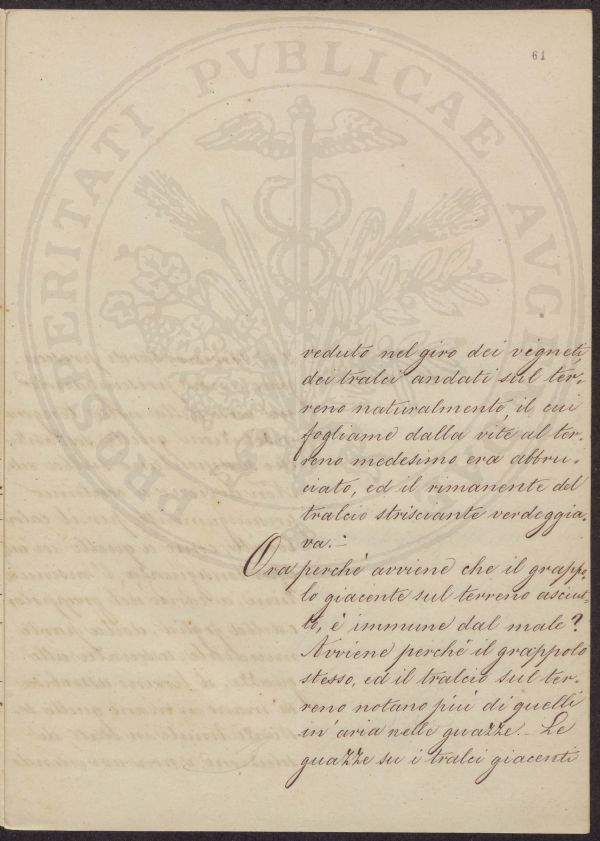 61
PROSPERITATI PVBLICAE AVGE
veduto nel giro dei vigneti
dei tralci andati sul ter-
reno naturalmente, il cui
fogliame dalla vite al ter-
reno medesimo era abbru-
ciato, ed il rimanente del
tralcio strisciante verdeggia-
va.-
Ora perché avviene che il grappo-
lo giacente sul terreno asciut-
to, é immune dal male?
Avviene perché il grappolo
stesso, ed il tralcio sul ter-
reno notano piú di quelli
in aria nelle guazze.- Le
guazze su i tralci giacenti